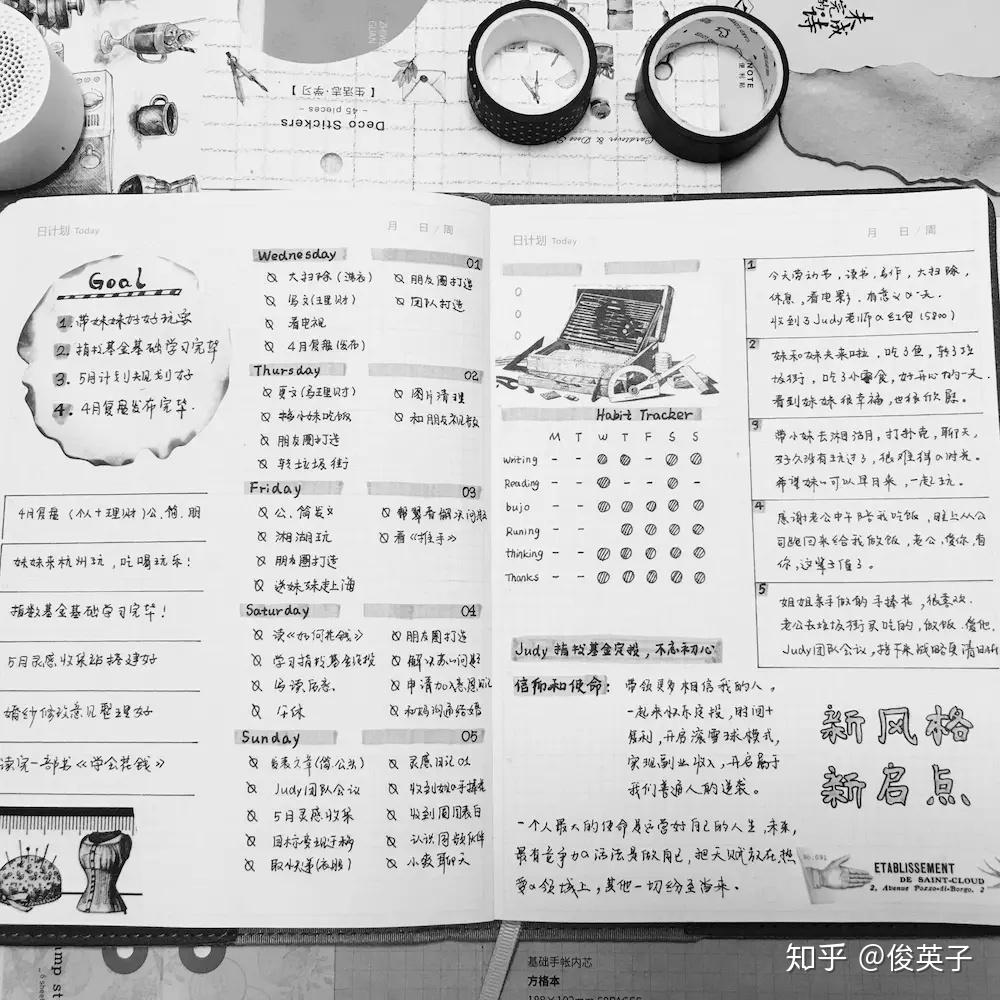 未完成的诗
NOTE
【生活志·学习】
- 45 pieces -
Deco Stickers
日计划 Today
月 日/周
Goal
1. 带妹妹好好玩耍
2. 指数基金基础学习完毕
3. 5月计划大规划好
4. 4月复盘发布完毕.
4月复盘(个人+理财)公.简.朋
妹妹来杭州玩,吃喝玩乐!
指数基金基础学习完毕!
5月灵感收集站搭建好
婚纱修改意见整理好
读完一部书《学会花钱》
Wednesday 01
大扫除(洗衣)
写文(理财)
看电视
4月复盘(发布)
朋友圈打造
团队打造
Thursday 02
更文(写理财)
接小妹吃饭
朋友圈打造
转垃圾街
图片清理
和朋友视频
Friday 03
公.简发文
湘湖玩
朋友圈打造
送妹妹走上海
帮琴看解决问题
看《推手》
Saturday 04
读《如何花钱》
学习指数基金定投
写读后感.
午休
朋友圈打造
申请加入感恩日记
和妈沟通结婚
Sunday 05
发表文章(简.公众)
Judy团队会议
5月灵感收集
目标变现手稿
取快递(衣服)
灵感日记01
收到姐手捧花
收到圈圈表白
小葵聊天
日计划 Today
月 日/周
Habit Tracker
M T W T F S S
Writing
Reading
bujo
Runing
thinking
Thanks
1
今天劳动节,读书,写作,大扫除,
休息,看电影.有意义的一天.
收到了Judy老师的红包(5800)
2
妹和妹夫来啦,吃了鱼,转了垃
圾街,吃了小零食,好开心的一天.
看到妹妹很幸福,也很欣慰。
3
带小妹去湘湖,打扑克,聊天,
好久没有玩过了,很难得的时光。
希望妹可以早日来,一起玩。
4
感谢老公中午陪我吃饭,晚上从公
司跑回来给我做饭,老公.有你.有
你,这辈子值了。
5
姐姐亲手做的手捧花,很喜欢.
老公去垃圾街买吃的,做饭.爱他.
Judy团队会议,接下来战略更清晰
Judy 指数基金定投,不忘初心
信仰和使命:
带领更多相信我的人,
一起来快乐定投,时间+
复利,开启滚雪球模式,
实现副业收入,开启属于
我们普通人的逆袭。
一个人最大的使命是运营好自己的人生.未来,
最有竞争力的活法是做自己,把天赋放在热
爱的领域上,其他一切纷至沓来.
新风格
新启点
No.091
ETABLISSEMENT
DE SAINT-CLOUD
2, Avenue Pozzo-di-Borgo, 2
基础手帐内芯
方格本
知乎 @俊英子